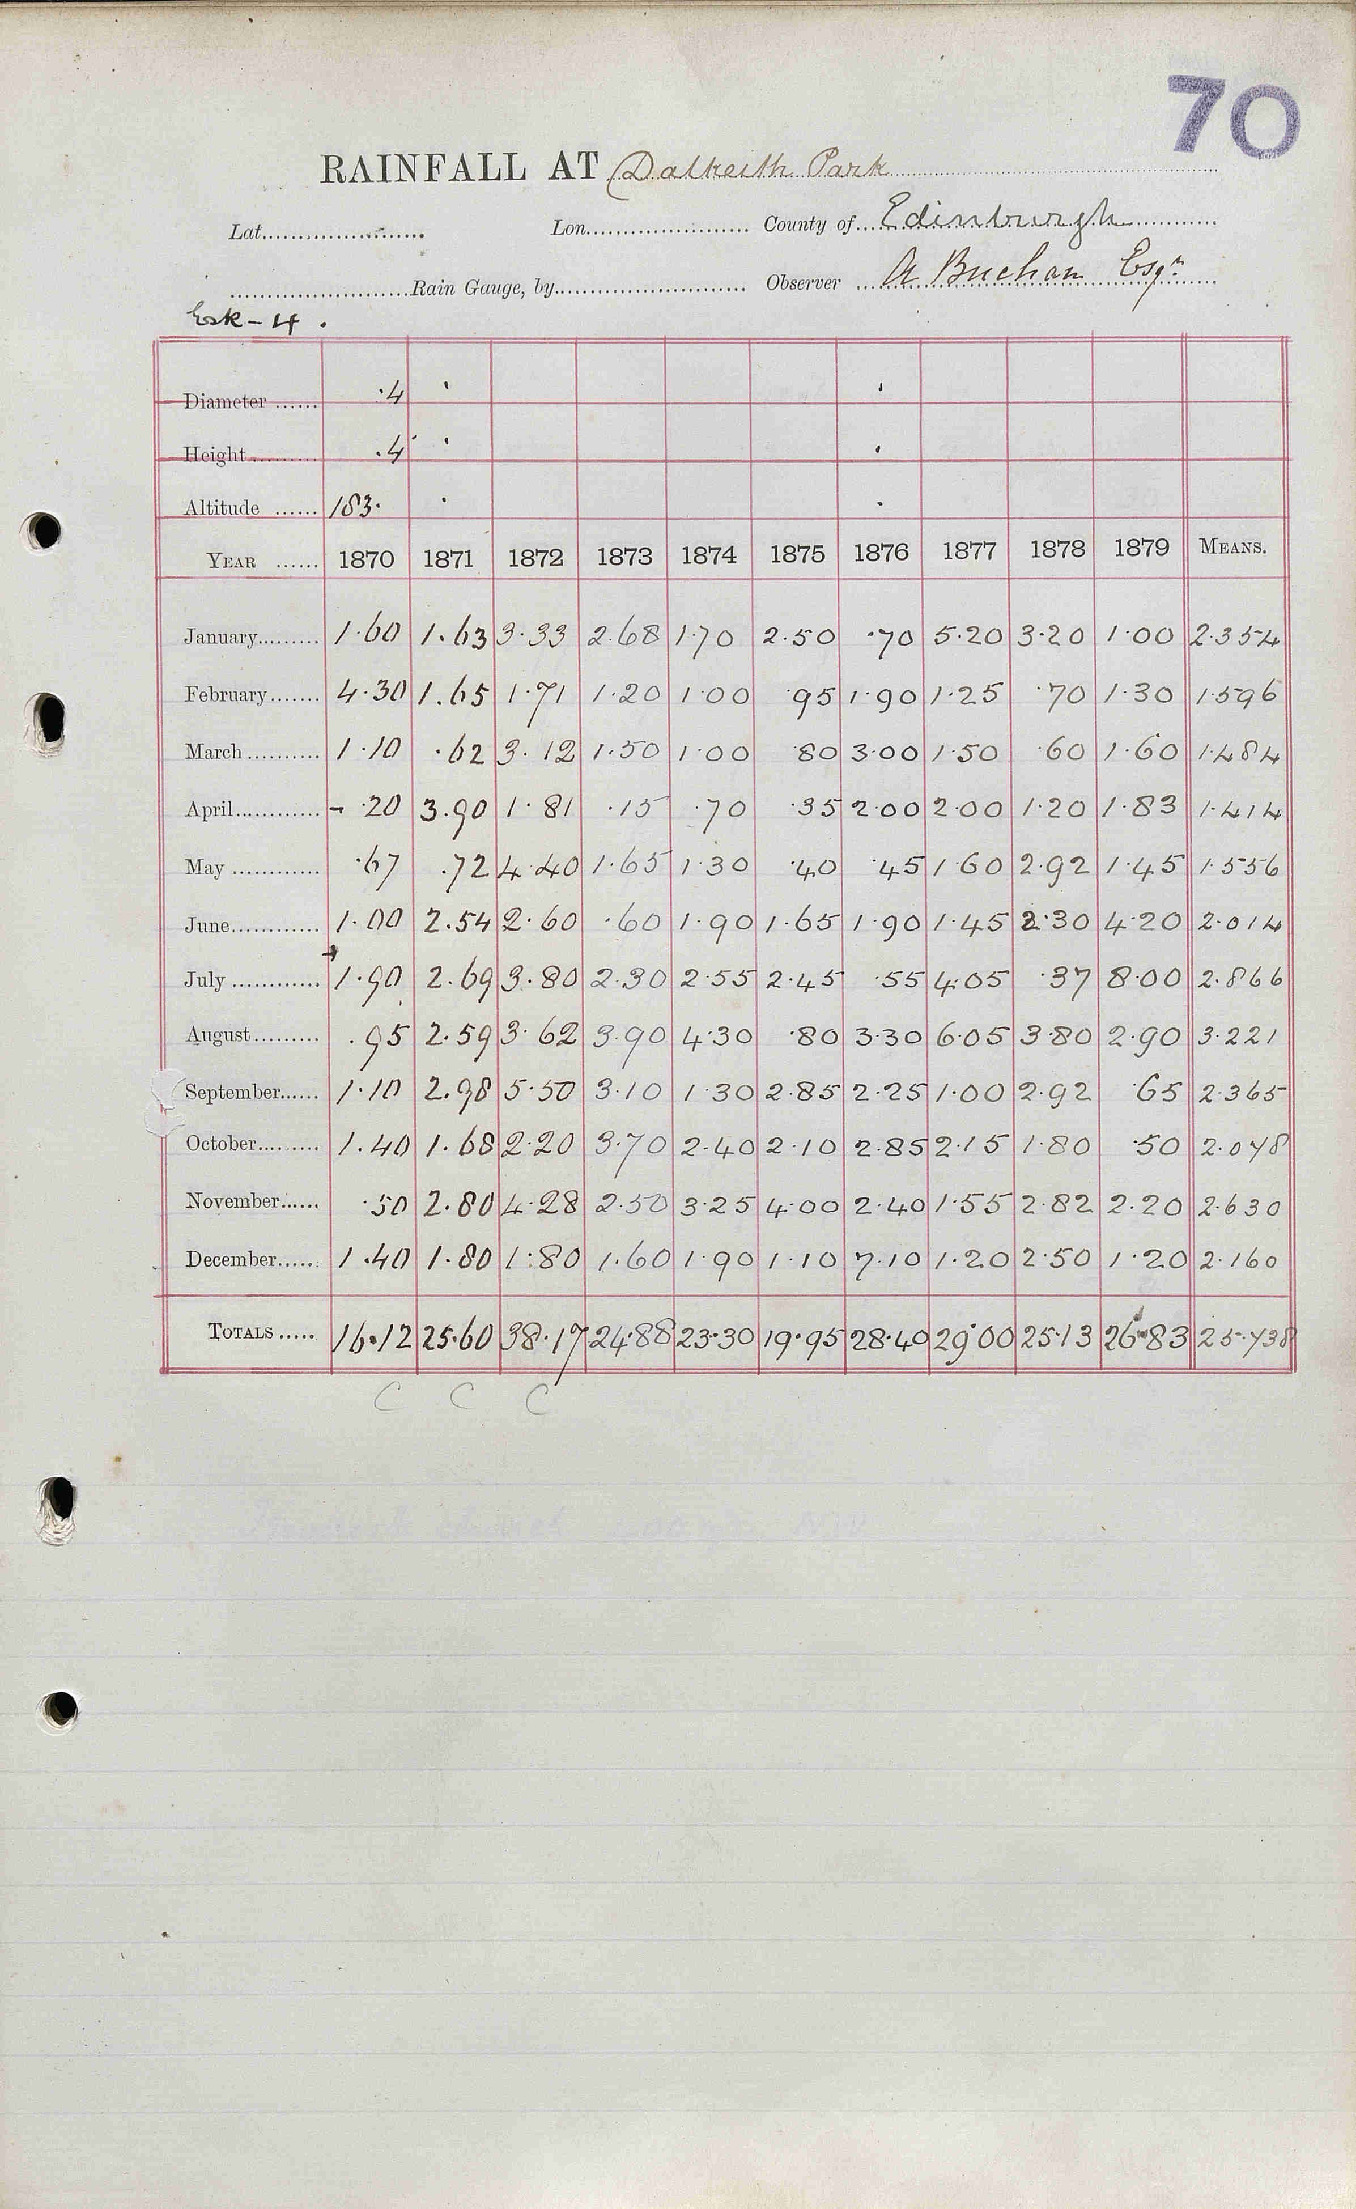 70
RAINFALL AT Dalkeith Park
Lat. Lon. County of Edinburgh
Rain Gauge, by Observer A Buchan Esqr
Esk - 4.
Diameter ...... .4
Height .......... .4
Altitude ...... 183.
YEAR ...... 1870 1871 1872 1873 1874 1875 1876 1877 1878 1879 MEANS.
January......... 1.60 1.63 3.33 2.68 1.70 2.50 .70 5.20 3.20 1.00 2.354
February....... 4.30 1.65 1.71 1.20 1.00 .95 1.90 1.25 .70 1.30 1.596
March .......... 1.10 .62 3.12 1.50 1.00 .80 3.00 1.50 .60 1.60 1.484
April............ - .20 3.90 1.81 .15 .70 .35 2.00 2.00 1.20 1.83 1.414
May ............ .67 .72 4.40 1.65 1.30 .40 .45 1.60 2.92 1.45 1.556
June............ 1.00 2.54 2.60 .60 1.90 1.65 1.90 1.45 2.30 4.20 2.014
July ............ 1.90 2.69 3.80 2.30 2.55 2.45 .55 4.05 .37 8.00 2.866
August......... .95 2.59 3.62 3.90 4.30 .80 3.30 6.05 3.80 2.90 3.221
September...... 1.10 2.98 5.50 3.10 1.30 2.85 2.25 1.00 2.92 .65 2.365
October......... 1.40 1.68 2.20 3.70 2.40 2.10 2.85 2.15 1.80 .50 2.078
November...... .50 2.80 4.28 2.50 3.25 4.00 2.40 1.55 2.82 2.20 2.630
December...... 1.40 1.80 1.80 1.60 1.90 1.10 7.10 1.20 2.50 1.20 2.160
TOTALS ..... 16.12 25.60 38.17 24.88 23.30 19.95 28.40 29.00 25.13 26.83 25.738
C C C